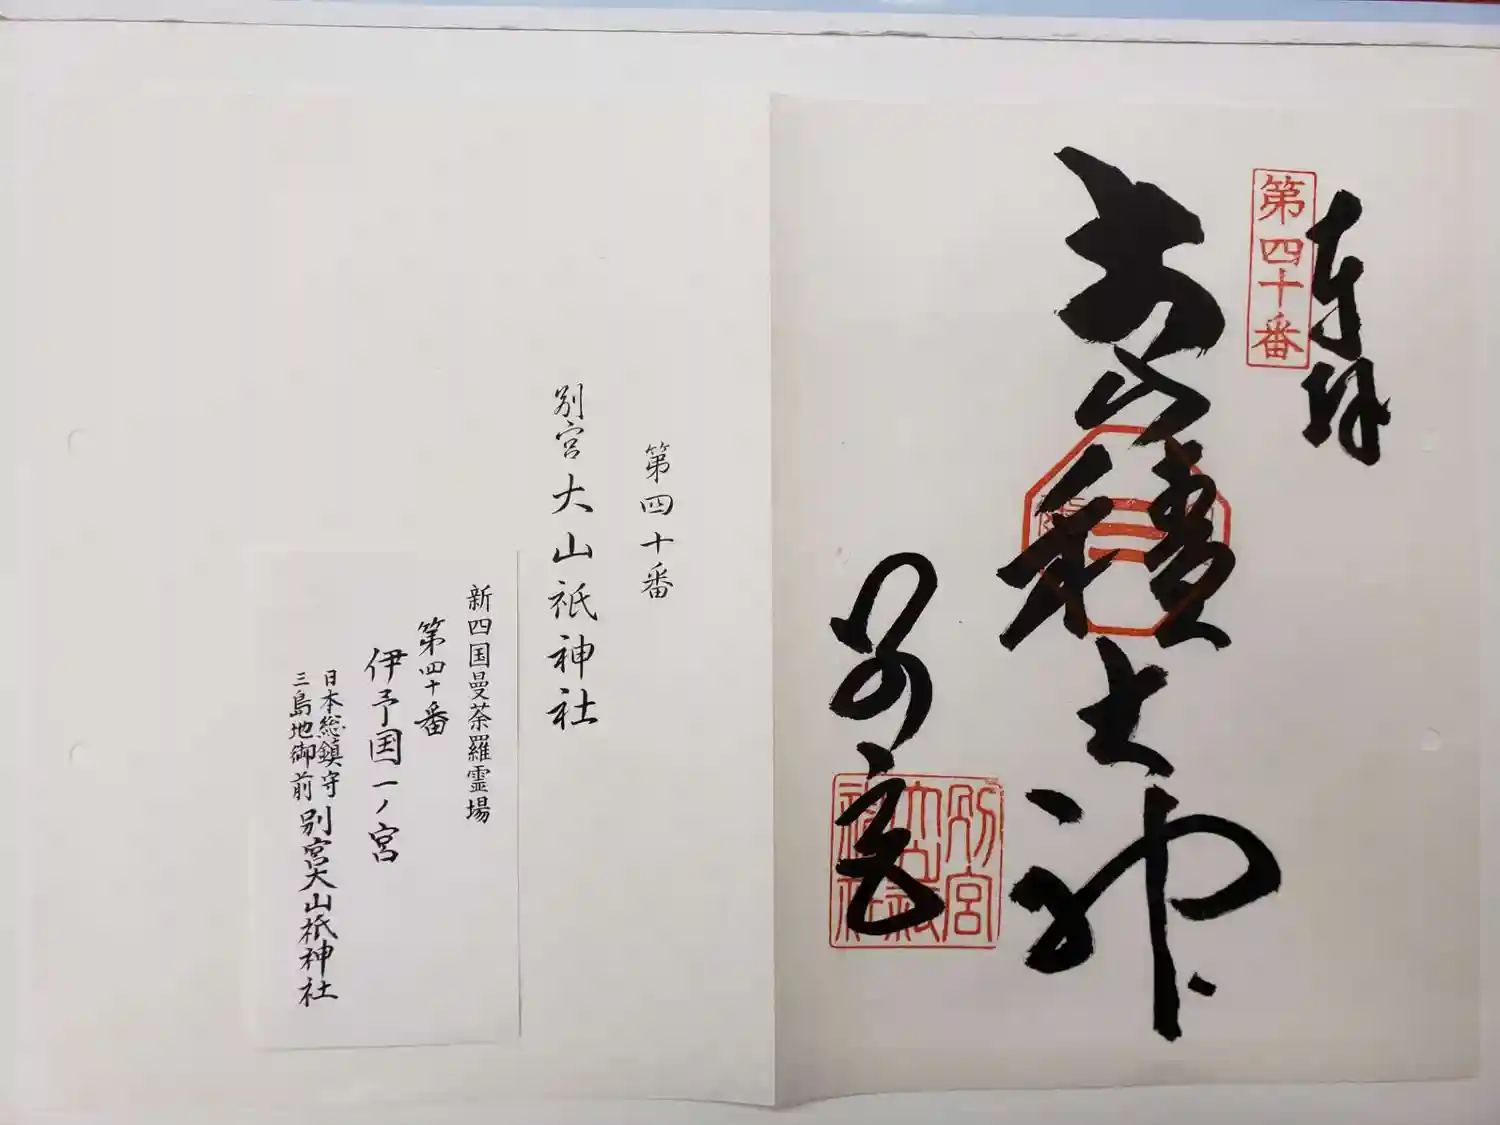 奉拝
第四十番
大山積大神
別宮
別宮
大山祇
神社
第四十番
別宮大山祇神社
新四国曼荼羅霊場
第四十番
伊予国一ノ宮
日本総鎮守
三島地御前
別宮大山祇神社